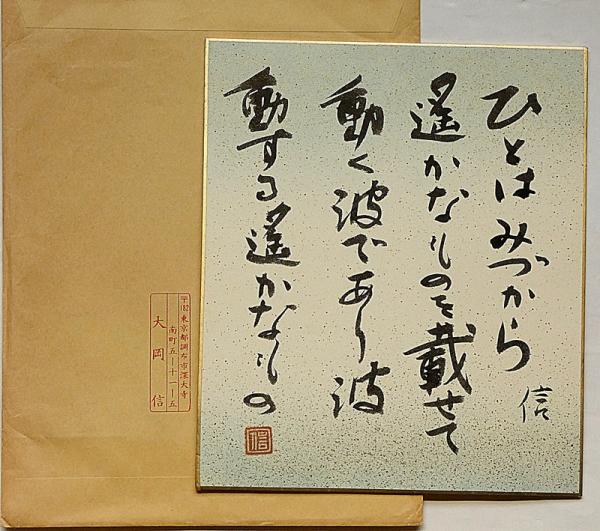 ひとはみづから
遙かなものを載せて
動く波であり波
動する遙かなもの
信
信
〒182東京都調布市深大寺
南町五ー十一ー五
大岡信